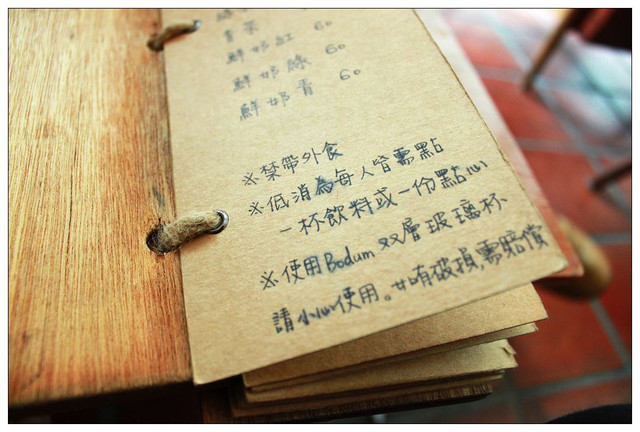 青茶 60
鮮奶紅 60
鮮奶綠 60
鮮奶青 60
※禁帶外食
※低消為每人皆需點
一杯飲料或一份點心
※使用Bodum 双層玻璃杯
請小心使用。若有破損,需賠償